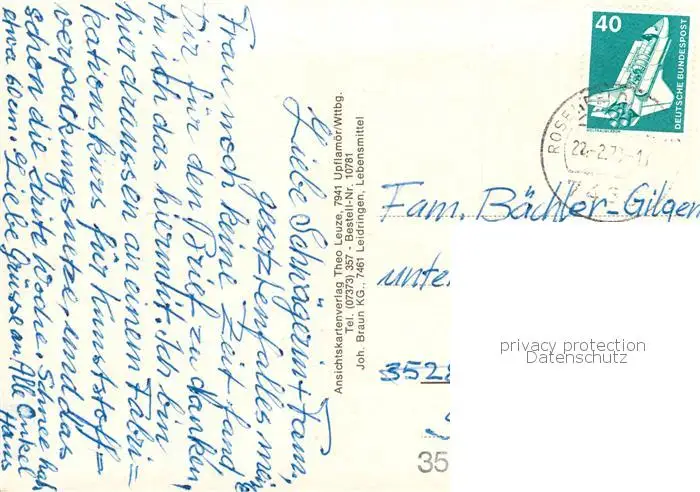 Liebe Schwägerin + Fam,
gesetztenfalls mei
Frau noch keine Zeit fand,
Dir für den Brief zu danken,
tu ich das hiermit. Ich bin
hier draussen an einem Fabri=
kationskurs für Kunststoff=
verpackungsnetze, und das
schon die dritte Woche. Schnee hats
etwa 60cm. Liebe Grüsse an Alle Onkel
Hans
Ansichtskartenverlag Theo Leuze, 7941 Upflamör/Wttbg.
Tel. (07373) 357 - Bestell-Nr. 10781
Joh. Braun KG., 7461 Leidringen, Lebensmittel
40
DEUTSCHE BUNDESPOST
22.-2.7
Fam. Bächler-Gilgen
unte
3528
35
privacy protection
Datenschutz